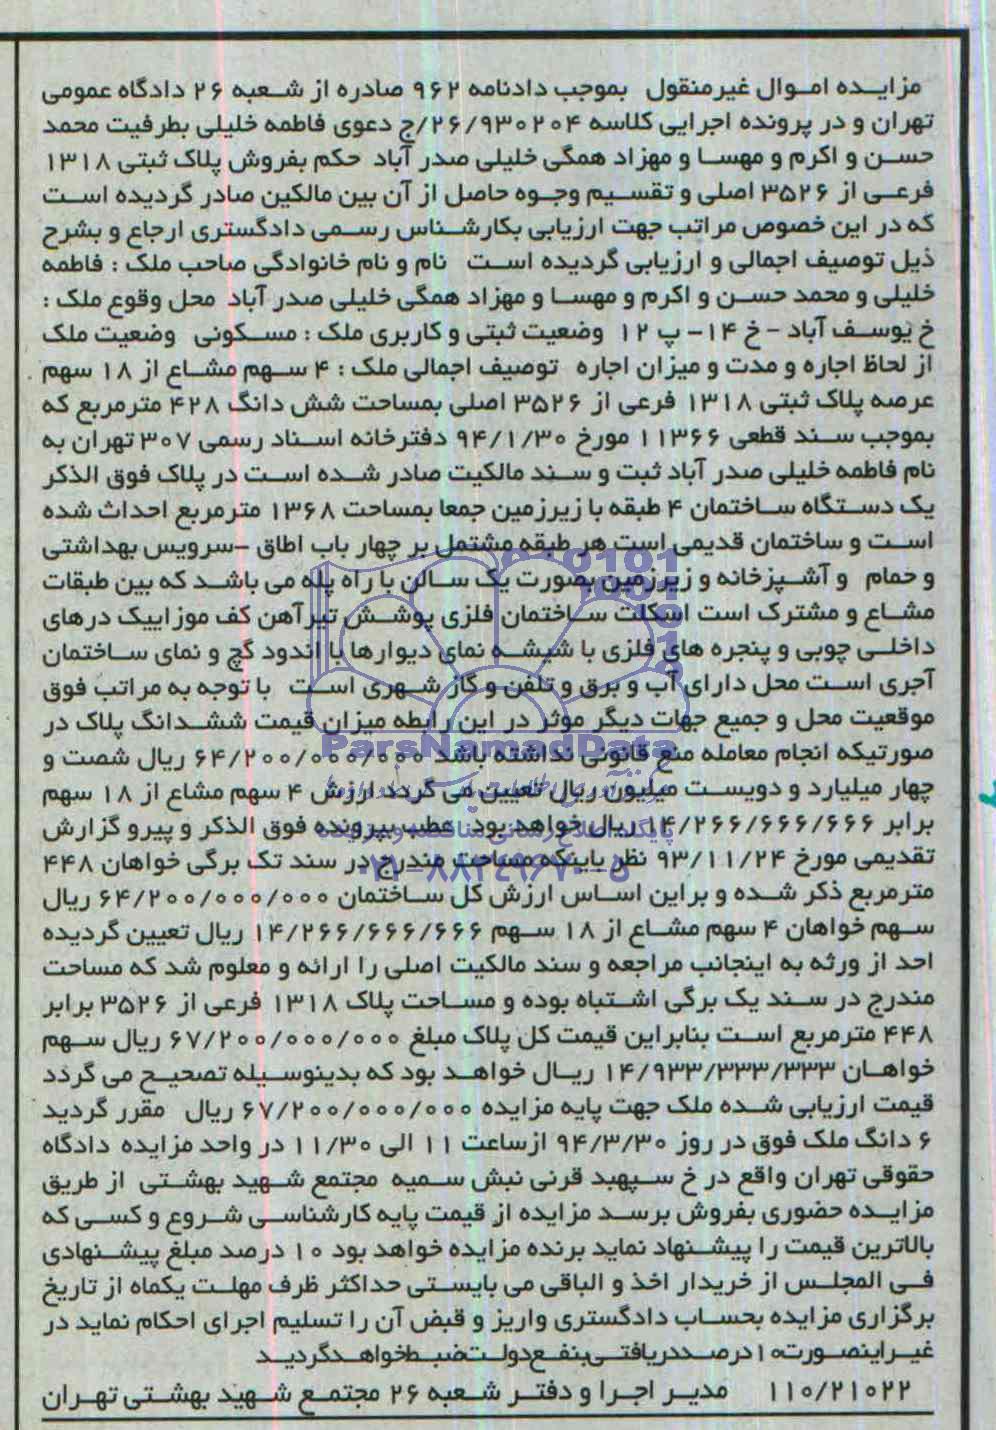 مزایده اموال غیرمنقول بموجب دادنامه ۹۶۲ صادره از شعبه ۲۶ دادگاه عمومی
تهران و در پرونده اجرایی کلاسه ۲۶/۹۳۰۲۰۴/ج دعوی فاطمه خلیلی بطرفیت محمد
حسن و اکرم و مهسا و مهزاد همگی خلیلی صدر آباد حکم بفروش پلاک ثبتی ۱۳۱۸
فرعی از ۳۵۲۶ اصلی و تقسیم وجوه حاصل از آن بین مالکین صادر گردیده است
که در این خصوص مراتب جهت ارزیابی بکارشناس رسمی دادگستری ارجاع و بشرح
ذیل توصیف اجمالی و ارزیابی گردیده است نام و نام خانوادگی صاحب ملک : فاطمه
خلیلی و محمد حسن و اکرم و مهسا و مهزاد همگی خلیلی صدر آباد محل وقوع ملک :
خ یوسف آباد - خ ۱۴- پ ۱۲ وضعیت ثبتی و کاربری ملک : مسکونی وضعیت ملک
از لحاظ اجاره و مدت و میزان اجاره توصیف اجمالی ملک : ۴ سهم مشاع از ۱۸ سهم
عرصه پلاک ثبتی ۱۳۱۸ فرعی از ۳۵۲۶ اصلی بمساحت شش دانگ ۴۲۸ مترمربع که
بموجب سند قطعی ۱۱۳۶۶ مورخ ۹۴/۱/۳۰ دفترخانه اسناد رسمی ۳۰۷ تهران به
نام فاطمه خلیلی صدر آباد ثبت و سند مالکیت صادر شده است در پلاک فوق الذکر
یک دستگاه ساختمان ۴ طبقه با زیرزمین جمعا بمساحت ۱۳۶۸ مترمربع احداث شده
است و ساختمان قدیمی است هر طبقه مشتمل بر چهار باب اطاق -سرویس بهداشتی
و حمام و آشپزخانه و زیرزمین بصورت یک سالن با راه پله می باشد که بین طبقات
مشاع و مشترک است اسکلت ساختمان فلزی پوشش تیرآهن کف موزاییک درهای
داخلی چوبی و پنجره های فلزی با شیشه نمای دیوارها با اندود گچ و نمای ساختمان
آجری است محل دارای آب و برق و تلفن و گاز شهری است با توجه به مراتب فوق
موقعیت محل و جمیع جهات دیگر موثر در این رابطه میزان قیمت ششدانگ پلاک در
صورتیکه انجام معامله منع قانونی نداشته باشد ۶۴/۲۰۰/۰۰۰/۰۰۰ ریال شصت و
چهار میلیارد و دویست میلیون ریال تعیین می گردد ارزش ۴ سهم مشاع از ۱۸ سهم
برابر ۱۴/۲۶۶/۶۶۶/۶۶۶ ریال خواهد بود عطف بپرونده فوق الذکر و پیرو گزارش
تقدیمی مورخ ۹۳/۱۱/۲۴ نظر باینکه مساحت مندرج در سند تک برگی خواهان ۴۴۸
مترمربع ذکر شده و براین اساس ارزش کل ساختمان ۶۴/۲۰۰/۰۰۰/۰۰۰ ریال
سهم خواهان ۴ سهم مشاع از ۱۸ سهم ۱۴/۲۶۶/۶۶۶/۶۶۶ ریال تعیین گردیده
احد از ورثه به اینجانب مراجعه و سند مالکیت اصلی را ارائه و معلوم شد که مساحت
مندرج در سند یک برگی اشتباه بوده و مساحت پلاک ۱۳۱۸ فرعی از ۳۵۲۶ برابر
۴۴۸ مترمربع است بنابراین قیمت کل پلاک مبلغ ۶۷/۲۰۰/۰۰۰/۰۰۰ ریال سهم
خواهان ۱۴/۹۳۳/۳۳۳/۳۳۳ ریال خواهد بود که بدینوسیله تصحیح می گردد
قیمت ارزیابی شده ملک جهت پایه مزایده ۶۷/۲۰۰/۰۰۰/۰۰۰ ریال مقرر گردید
۶ دانگ ملک فوق در روز ۹۴/۳/۳۰ ازساعت ۱۱ الی ۱۱/۳۰ در واحد مزایده دادگاه
حقوقی تهران واقع در خ سپهبد قرنی نبش سمیه مجتمع شهید بهشتی از طریق
مزایده حضوری بفروش برسد مزایده از قیمت پایه کارشناسی شروع و کسی که
بالاترین قیمت را پیشنهاد نماید برنده مزایده خواهد بود ۱۰ درصد مبلغ پیشنهادی
فی المجلس از خریدار اخذ و الباقی می بایستی حداکثر ظرف مهلت یکماه از تاریخ
برگزاری مزایده بحساب دادگستری واریز و قبض آن را تسلیم اجرای احکام نماید در
غیراینصورت۱۰درصددریافتی‌بنفع‌دولت‌ضبط‌خواهدگردید
۱۱۰/۲۱۰۲۲ مدیر اجرا و دفتر شعبه ۲۶ مجتمع شهید بهشتی تهران
ParsNamadData
پایگاه اطلاع رسانی مناقصه و مزایده
۰۲۱-۸۸۳۴۹۶۷۰-۵